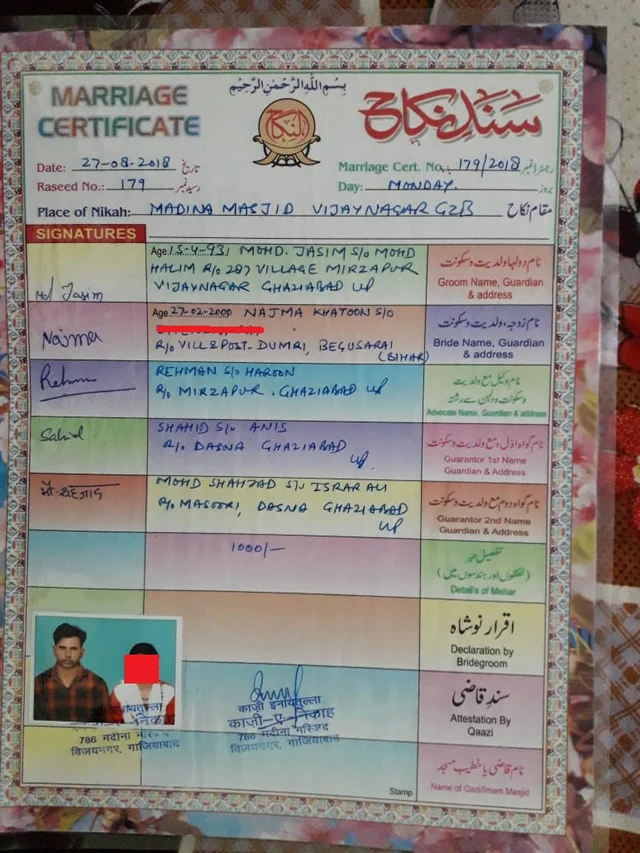 بِسْمِ اللهِ الرَّحْمٰنِ الرَّحِيْمِ
MARRIAGE
CERTIFICATE
النکاح
سَندِ نکاح
Date: 27-08-2018 تاریخ
Marriage Cert. No. 179/2018 رجسٹرنمبر
Raseed No.: 179 رسیدنمبر
Day: MONDAY بروز
Place of Nikah: MADINA MASJID VIJAYNAGAR GZB مقام نکاح
SIGNATURES
Age 15-4-93, MOHD. JASIM S/O MOHD
HALIM R/O 287 VILLAGE MIRZAPUR
VIJAYNAGAR GHAZIABAD UP
Md Jasim
نام دولہا ولدیت وسکونت
Groom Name, Guardian
& address
Age 27-02-2000 NAJMA KHATOON S/O
R/O VILL & POST-DUMRI, BEGUSARAI
(BIHAR)
Najma
نام زوجہ، ولدیت وسکونت
Bride Name, Guardian
& address
REHMAN S/O HAROON
R/O MIRZAPUR. GHAZIABAD UP
Rehman
نام وکیل مع ولدیت
وسکونت ودولہن سے رشتہ
Advocate Name, Guardian & address
SHAHID S/O ANIS
R/O DASNA GHAZIABAD
UP.
نام گواہ اول مع ولدیت وسکونت
Guarantor 1st Name
Guardian & Address
MOHD SHAHZAD S/O ISRAR ALI
R/O MASOORI, DASNA GHAZIABAD
UP
मौ. शहजाद
نام گواہ دوم مع ولدیت وسکونت
Guarantor 2nd Name
Guardian & Address
1000/-
تفصیل مہر
(لفظوں اور ہندسوں میں)
Detail's of Mehar
اقرار نوشاہ
Declaration by
Bridegroom
سندِ قاضی
Attestation By
Qaazi
काज़ी इनायतुल्ला
काज़ी-ए-निकाह
786 मदीना मस्जिद
विजयनगर, गाजियाबाद
नायतुल्ला
निकाह
786 मदीना मस्जिद
विजयनगर, गाजियाबाद
Stamp
نام قاضی یا خطیب مسجد
Name of Qazi/Imam Masjid